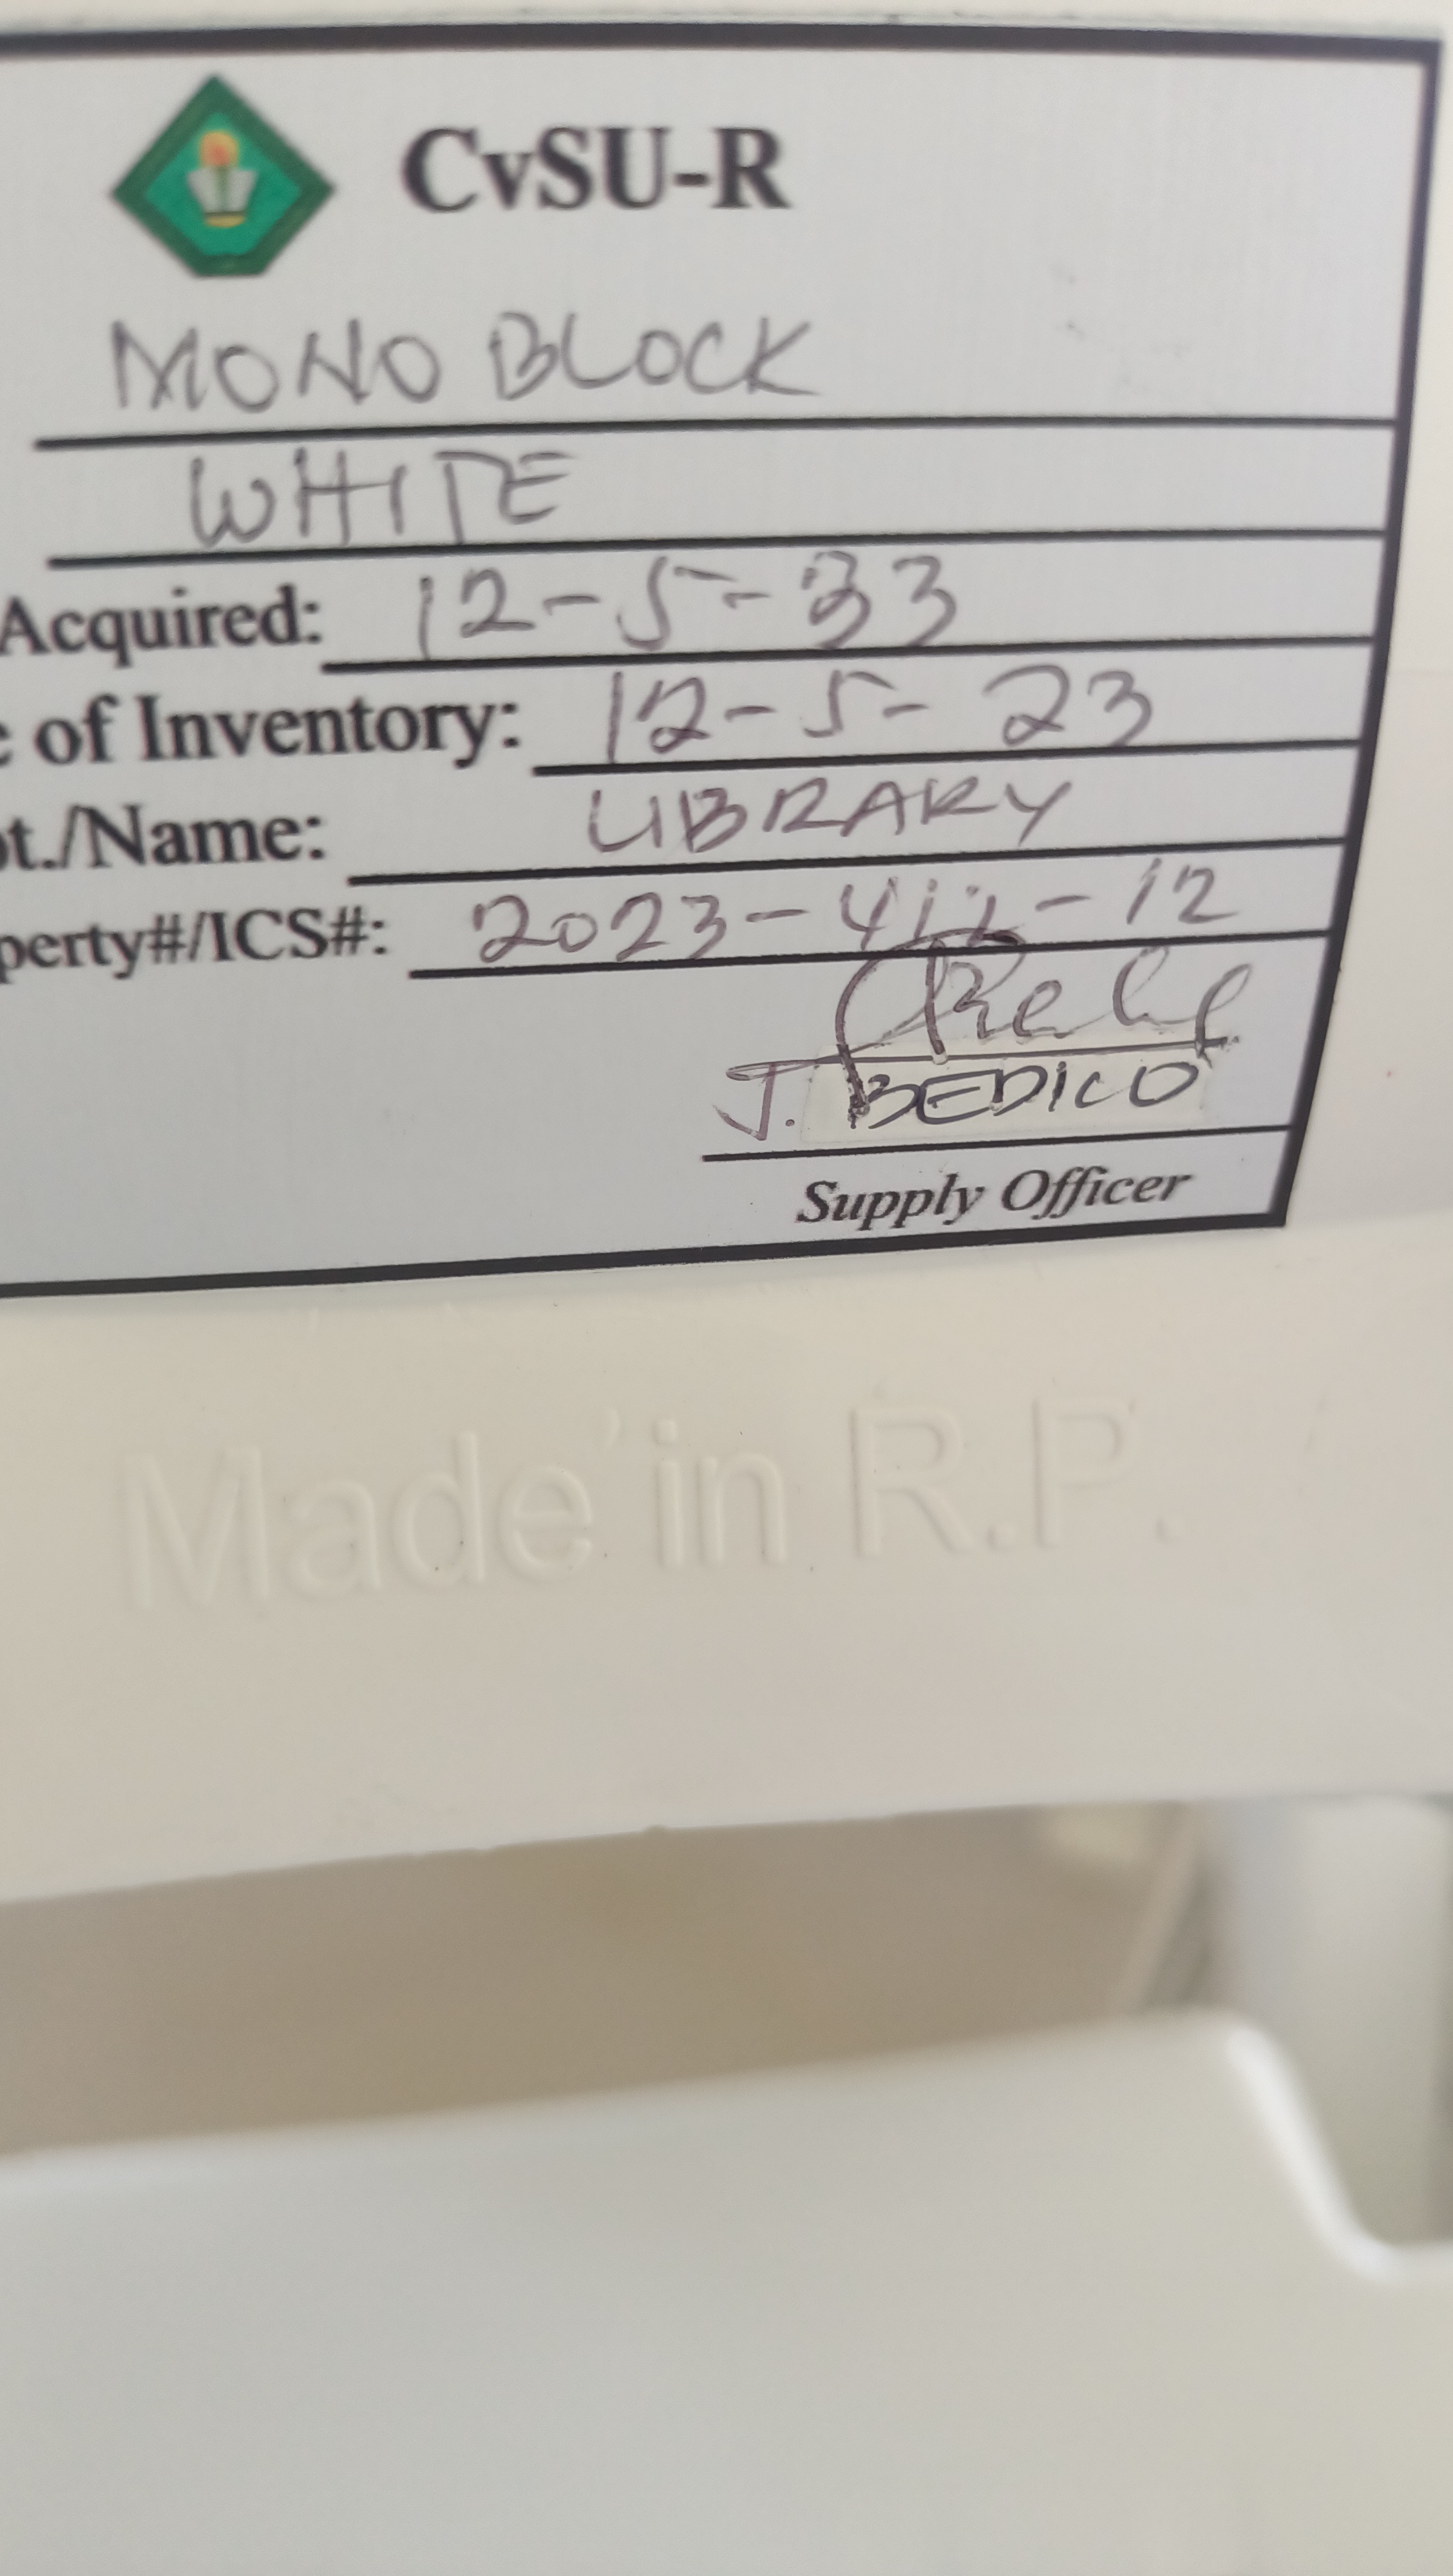 CvSU-R
MONO BLOCK
WHITE
Acquired: 12-5-33
of Inventory: 12-5-23
t./Name: LIBRARY
perty#/ICS#: 2023-412-12
J. BEDICO
Supply Officer
Made in R.P.